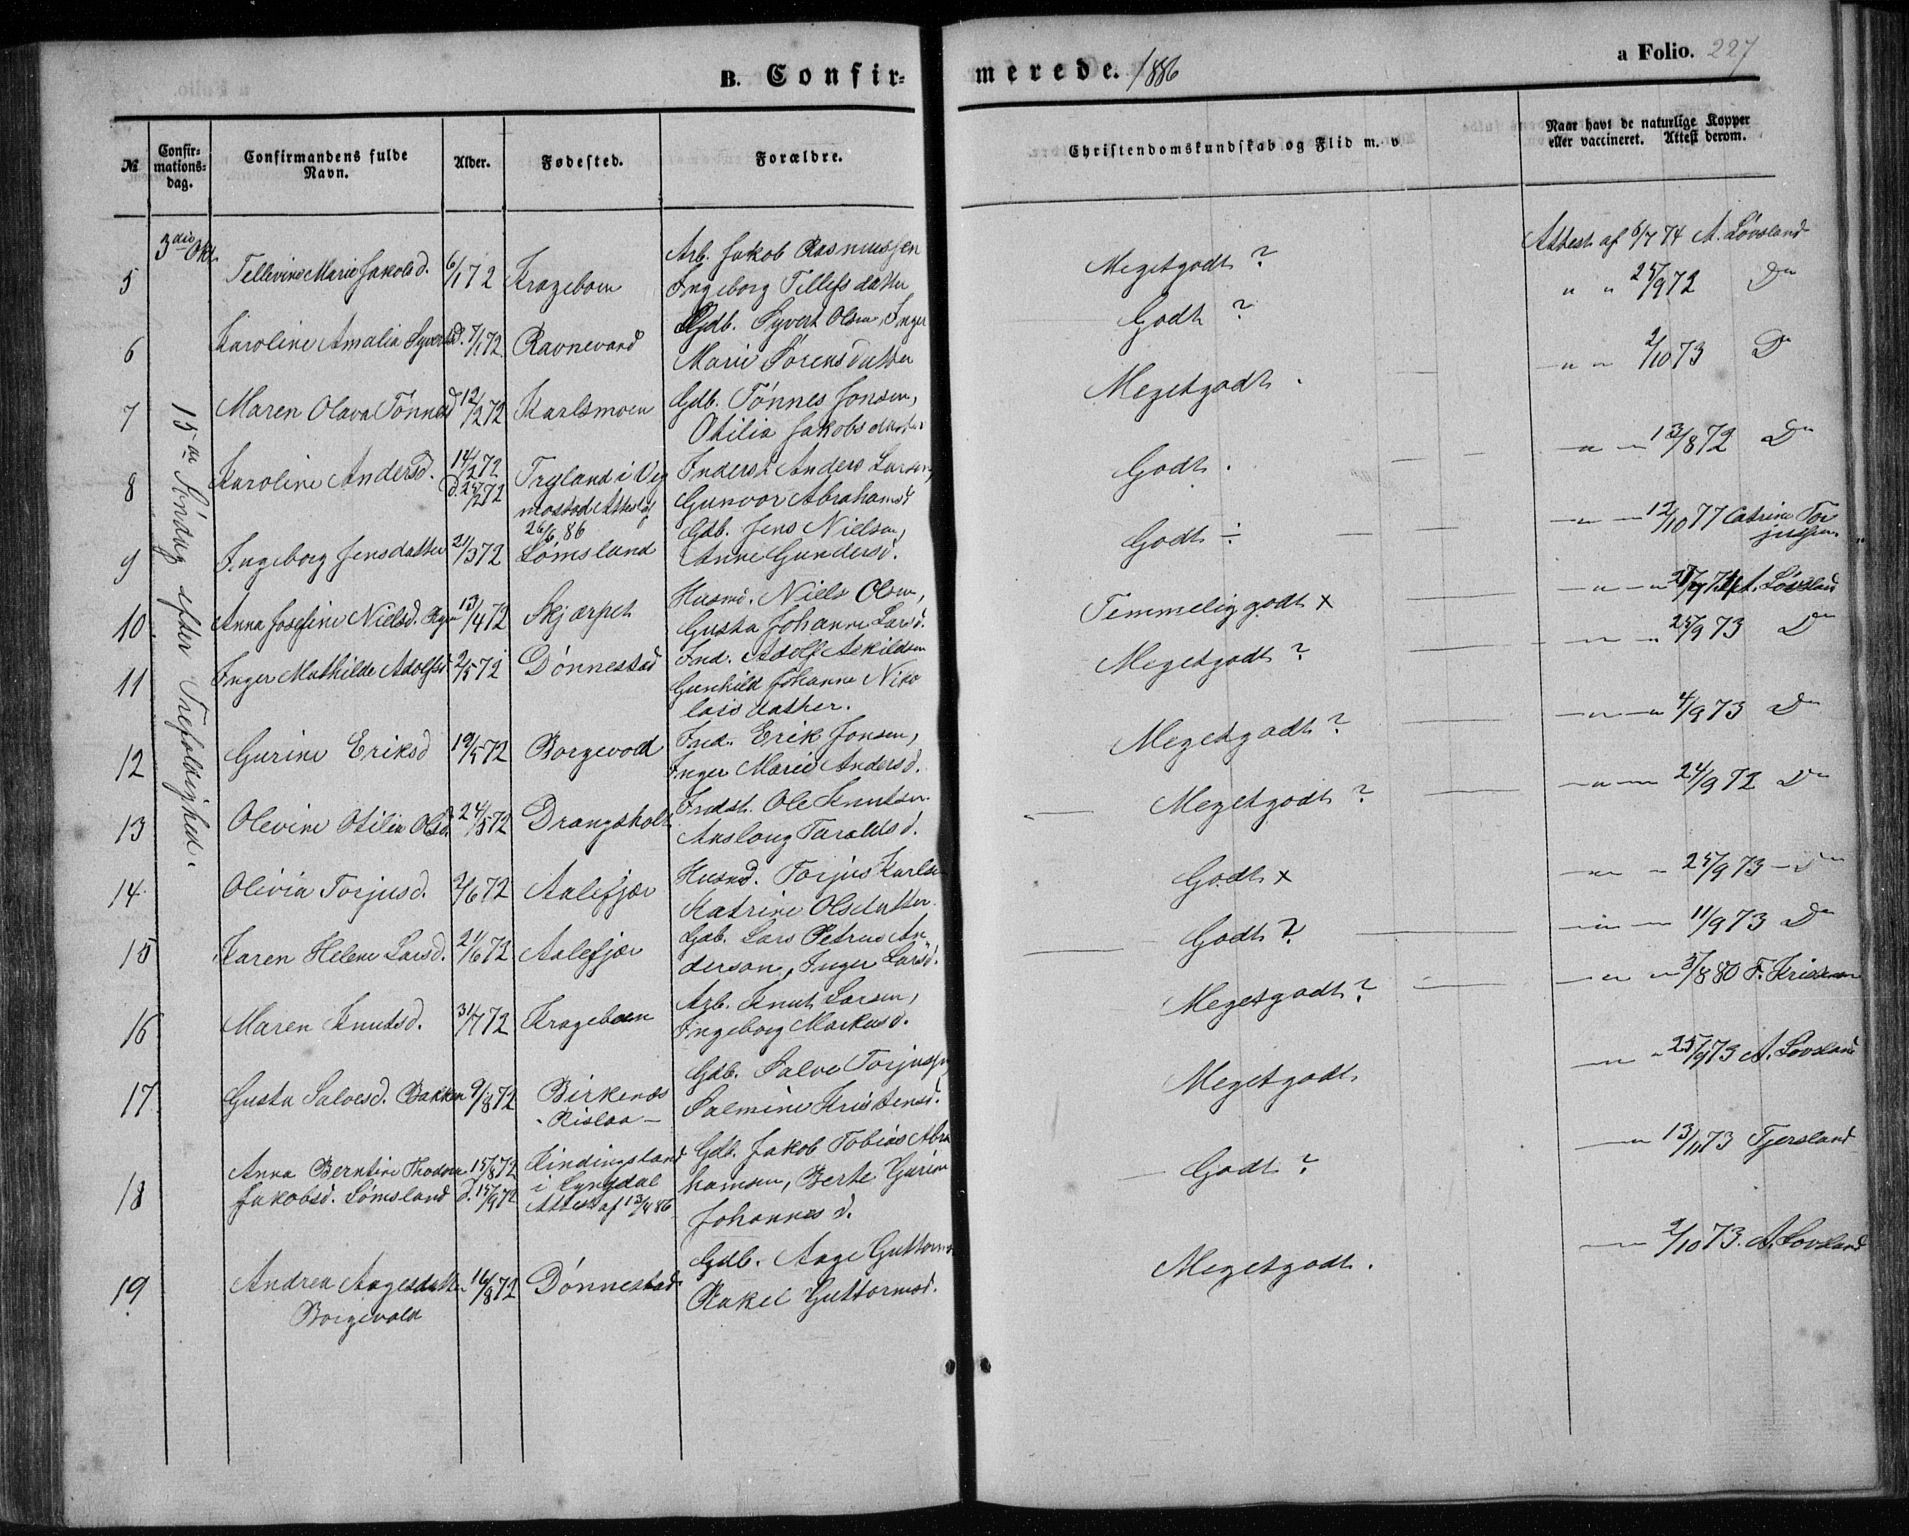 B. Confir-
merede. 1886
a Folio. 227
№
Confir-
mations-
dag.
Confirmandens fulde
Navn.
Alder.
Fødested.
Forældre.
Christendomskundskab og Flid m. v
Naar havt de naturlige Kopper
eller vaccineret. Attest derom.
3die Okt.
15de Søndag efter Trefoldighed.
5 Tellevine Marie Jakobsd. 6/1 72 Krageboen
Arb. Jakob Rasmussen
Ingeborg Tellefsdatter
Megetgodt ?
Attest af 6/7 74 A. Løvsland
6 Karoline Amalia Syvertsd. 7/1 72 Ravnevand
Gdb. Syvert Olsen, Inger
Marie Sørensdatter
Godt ?
" " 25/9 72 Do
7 Maren Olava Tønnesd 12/2 72 Karlsmoen
Gdb. Tønnes Jonsen,
Otilia Jakobsdatter
Megetgodt .
" " 2/10 73 Do
8 Karoline Andersd. 14/2 72
d. 25/2 72
Tryland i Vig
mostad Attest af
26/6 86
Inderst Anders Larsen,
Gunvor Abrahamsd
Godt .
" " 13/8 72 Do
9 Ingeborg Jensdatter 21/3 72 Lømsland
Gdb. Jens Nielsen,
Anne Gundersd.
Godt ÷
" " 12/10 77 Catrine Tor
jussen
10 Anna Josefine Nielsd. 13/4 72 Skjærpet
Husmd. Niels Olsen,
Gusta Johanne Larsd.
Temmelig godt x
A. Løvsland
11 Inger Mathilde Adolfsd 2/5 72 Dønnestad
Ind. Adolf Askildsen
Gunhild Johanne Niko
laisdatter.
Megetgodt ?
" " 25/9 73 Do
12 Gurine Eriksd 19/5 72 Borgevold
Ind. Erik Jonsen,
Inger Marie Andersd.
Megetgodt ?
" " 4/9 73 Do
13 Olevine Otilia Olsd. 24/5 72 Drangsholt
Indst. Ole Knutsen
Anslaug Taraldsd.
Megetgodt ?
" " 24/9 72 Do
14 Olivia Torjusd. 2/6 72 Aalefjær
Husmd. Torjus Karlsen
Katrine Olsdatter.
Godt x
" " 25/9 73 Do
15 Karen Helene Larsd. 21/6 72 Aalefjær
Gdb. Lars Petrus An
derson, Inger Larsd.
Godt ?
" " 11/9 73 Do
16 Maren Knutsd. 31/7 72 Krageboen
Arb. Knut Larsen,
Ingeborg Markusd.
Megetgodt ?
" " 3/8 80 F.
17 Gusta Salvesd. Bakken 9/8 72 Birkenæs
- Rislaa -
Gdb. Salve Torjussen
Salmine Kristensd.
Megetgodt
" " 25/9 73 A. Løvsland
18 Anna Berntine Thodora
Jakobsd. Lømsland
15/8 72
d. 15/9 72
Kindingsland
i Lyngdal
Attest af 13/4 86
Gdb. Jakob Tobias Abra
hamsen, Berte Gurine
Johannesd.
Godt ?
" 13/11 73 Tjersland
19 Andrea Aagesdatter
Borgevold
16/8 72 Dønnestad
Gdb. Aage Guttorms
Rakel Guttormsd.
Megetgodt .
" 2/10 73. A. Løvsland